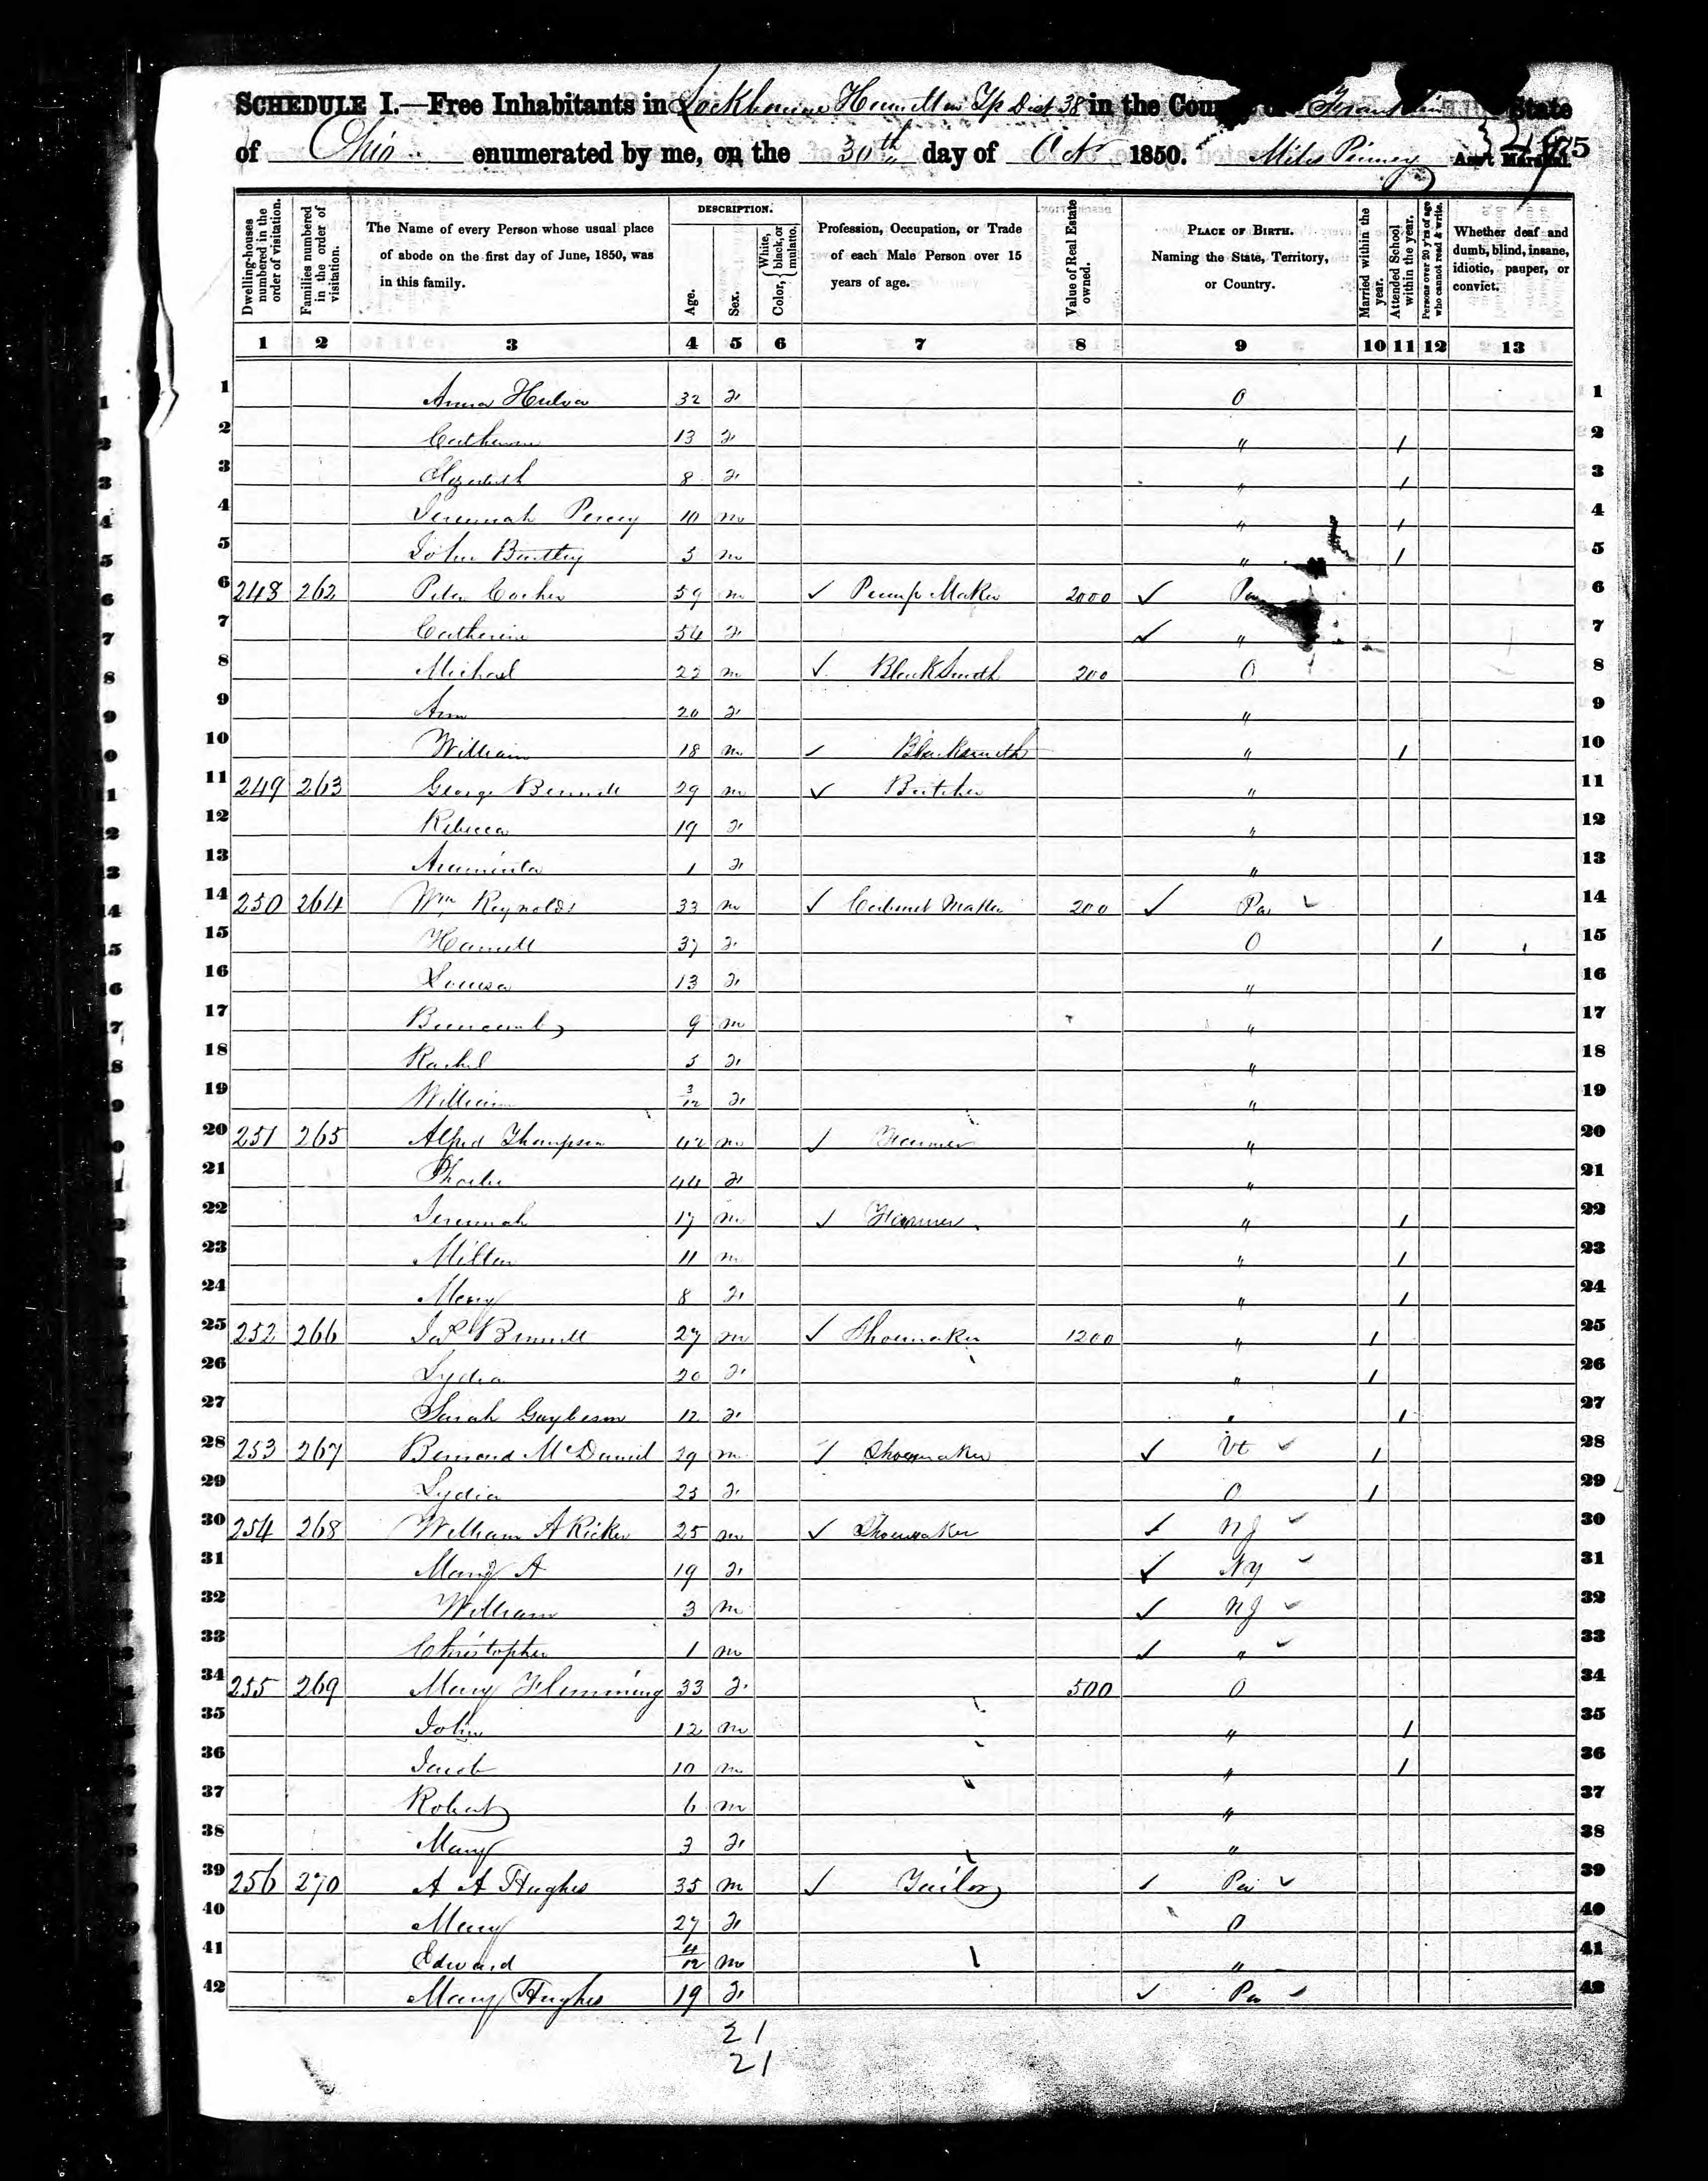 SCHEDULE I.—Free Inhabitants in Lockbourne Hamilton Tp Dist 38 in the County of Franklin State
of Ohio enumerated by me, on the 30th day of Oct 1850. Miles Pinney Ass't Marshal.
Dwelling-houses numbered in the order of visitation.
Families numbered in the order of visitation.
The Name of every Person whose usual place of abode on the first day of June, 1850, was in this family.
DESCRIPTION.
Age.
Sex.
Color, White, black, or mulatto.
Profession, Occupation, or Trade of each Male Person over 15 years of age.
Value of Real Estate owned.
PLACE OF BIRTH. Naming the State, Territory, or Country.
Married within the year.
Attended School within the year.
Persons over 20 y'rs of age who cannot read & write.
Whether deaf and dumb, blind, insane, idiotic, pauper, or convict.
1 2 3 4 5 6 7 8 9 10 11 12 13
1 Anna 32 F O 1
2 Catherine 13 F " / 2
3 Elizabeth 8 F " / 3
4 Jeremiah 10 m " / 4
5 John 5 m " / 5
6 248 262 Peter 59 m ✓ Pump Maker 2000 ✓ Pa 6
7 Catherine 54 F ✓ " 7
8 Michael 22 m ✓ BlackSmith 200 O 8
9 Ann 20 F " 9
10 William 18 m ✓ Blacksmith " / 10
11 249 263 George Bennett 29 m ✓ Butcher " 11
12 Rebecca 19 F " 12
13 Araminta 1 F " 13
14 250 264 Wm Reynolds 33 m ✓ Cabinet Maker 200 ✓ Pa ✓ 14
15 37 F O / 15
16 Louisa 13 F " 16
17 9 m " 17
18 Rachel 5 F " 18
19 William 3/12 F " 19
20 251 265 Alfred Thompson 42 m ✓ Farmer " 20
21 Phoebe 44 F " 21
22 Jeremiah 17 m ✓ Farmer " / 22
23 Milton 11 m " / 23
24 Mary 8 F " / 24
25 252 266 Jas Bennett 27 m ✓ Shoemaker 1200 " / 25
26 Lydia 20 F " / 26
27 Sarah 12 F " / 27
28 253 267 McDaniel 29 m ✓ Shoemaker ✓ Vt ✓ / 28
29 Lydia 23 F O / 29
30 254 268 William A Ricker 25 m ✓ Shoemaker ✓ NJ ✓ 30
31 Mary A 19 F ✓ NY ✓ 31
32 William 3 m ✓ NJ ✓ 32
33 Christopher 1 m ✓ " ✓ 33
34 255 269 Mary Flemming 33 F 500 O 34
35 John 12 m " / 35
36 Jacob 10 m " / 36
37 Robert 6 m " 37
38 Mary 3 F " 38
39 256 270 A A Hughes 35 m ✓ Tailor ✓ Pa ✓ 39
40 Mary 27 F O 40
41 Edward 4/12 m " 41
42 Mary Hughes 19 F ✓ Pa ✓ 42
21
21